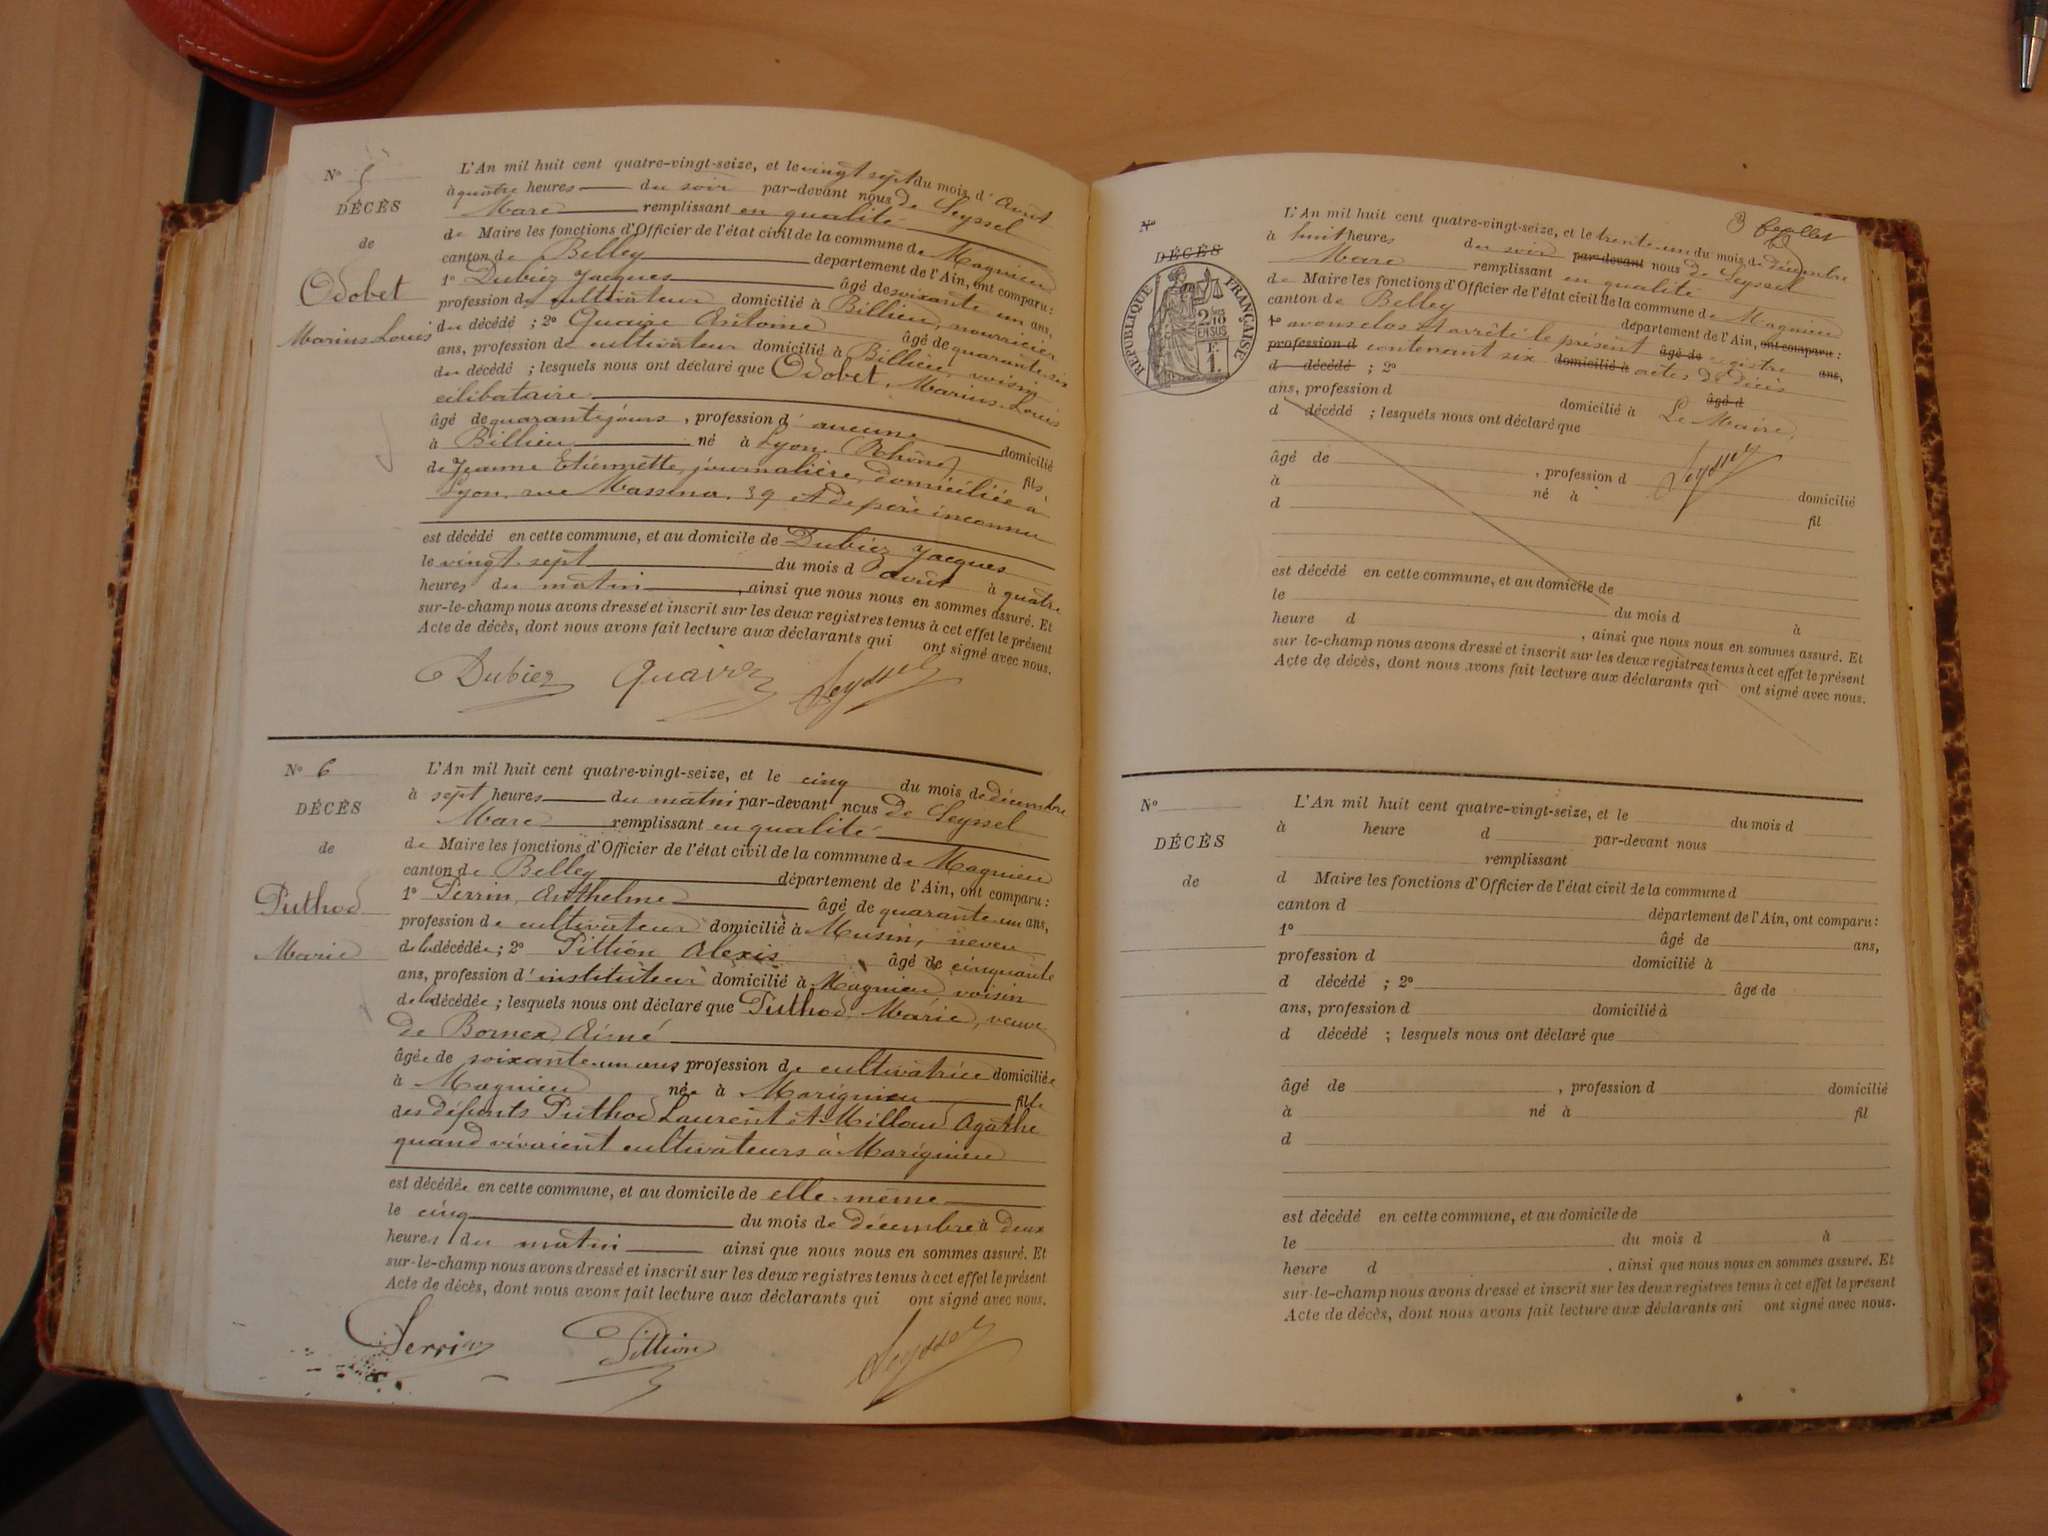 N° 5
DÉCÈS
de
Odobet
Marius Louis
L'An mil huit cent quatre-vingt-seize, et le vingt sept du mois d'Avril
à quatre heures du soir par-devant nous de Seyssel
Marc remplissant en qualité
de Maire les fonctions d'Officier de l'état civil de la commune de Magnieu
canton de Belley département de l'Ain, ont comparu:
1° Dubiez Jacques âgé de soixante un ans,
profession de cultivateur domicilié à Billieu, nourricier
du décédé ; 2° Quaire Antoine âgé de quarante six
ans, profession de cultivateur domicilié à Billieu, voisin
du décédé ; lesquels nous ont déclaré que Odobet, Marius Louis
célibataire
âgé de quarante jours , profession d'aucune domicilié
à Billieu né à Lyon (Rhône) fils
de Jeanne Etiennette, journalière, domiciliée à
Lyon, rue Masséna, 39 et de père inconnu
est décédé en cette commune, et au domicile de Dubiez Jacques
le vingt sept du mois d avril à quatre
heures du matin , ainsi que nous nous en sommes assuré. Et
sur-le-champ nous avons dressé et inscrit sur les deux registres tenus à cet effet le présent
Acte de décès, dont nous avons fait lecture aux déclarants qui ont signé avec nous.
Dubiez Quaire Seyssel
N° 6
DÉCÈS
de
Puthod
Marie
L'An mil huit cent quatre-vingt-seize, et le cinq du mois de décembre
à sept heures du matin par-devant nous de Seyssel
Marc remplissant en qualité
de Maire les fonctions d'Officier de l'état civil de la commune de Magnieu
canton de Belley département de l'Ain, ont comparu:
1° Perrin, Anthelme âgé de quarante un ans,
profession de cultivateur domicilié à Musin, neveu
de la décédée ; 2° Pittion Alexis âgé de cinquante
ans, profession d'instituteur domicilié à Magnieu voisin
de la décédée ; lesquels nous ont déclaré que Puthod, Marie, veuve
de Bornex, Aimé
âgée de soixante un ans profession de cultivatrice domiciliée
à Magnieu née à Marignieu fille
des défunts Puthod Laurent et Milloud Agathe
quand vivaient cultivateurs à Marignieu
est décédée en cette commune, et au domicile de elle-même
le cinq du mois de décembre à deux
heures du matin ainsi que nous nous en sommes assuré. Et
sur-le-champ nous avons dressé et inscrit sur les deux registres tenus à cet effet le présent
Acte de décès, dont nous avons fait lecture aux déclarants qui ont signé avec nous.
Perrin Pittion Seyssel
3 feuillet
N°
DÉCÈS
RÉPUBLIQUE FRANÇAISE
2/10 EN SUS
1 F.
L'An mil huit cent quatre-vingt-seize, et le trente-un du mois de décembre
à huit heures du soir par-devant nous de Seyssel
Marc remplissant en qualité
de Maire les fonctions d'Officier de l'état civil de la commune de Magnieu
canton de Belley département de l'Ain, ont comparu :
1° avons clos et arrêté le présent âgé de registre ans,
profession d contenant six domicilié à actes de décès
d décédé ; 2° âgé d
ans, profession d domicilié à Le Maire,
d décédé ; lesquels nous ont déclaré que
Seyssel
âgé de , profession d domicilié
à né à fil
d
est décédé en cette commune, et au domicile de
le du mois d à
heure d , ainsi que nous nous en sommes assuré. Et
sur le-champ nous avons dressé et inscrit sur les deux registres tenus à cet effet le présent
Acte de décès, dont nous avons fait lecture aux déclarants qui ont signé avec nous.
N°
DÉCÈS
de
L'An mil huit cent quatre-vingt-seize, et le du mois d
à heure d par-devant nous
remplissant
d Maire les fonctions d'Officier de l'état civil de la commune d
canton d département de l'Ain, ont comparu :
1° âgé de ans,
profession d domicilié à
d décédé ; 2° âgé de
ans, profession d domicilié à
d décédé ; lesquels nous ont déclaré que
âgé de , profession d domicilié
à né à fil
d
est décédé en cette commune, et au domicile de
le du mois d à
heure d , ainsi que nous nous en sommes assuré. Et
sur-le-champ nous avons dressé et inscrit sur les deux registres tenus à cet effet le présent
Acte de décès, dont nous avons fait lecture aux déclarants qui ont signé avec nous.